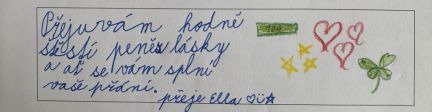 Přeju vám hodně
štěstí peněz lásky
a ať se vám splní
vaše přání.
přeje Ella